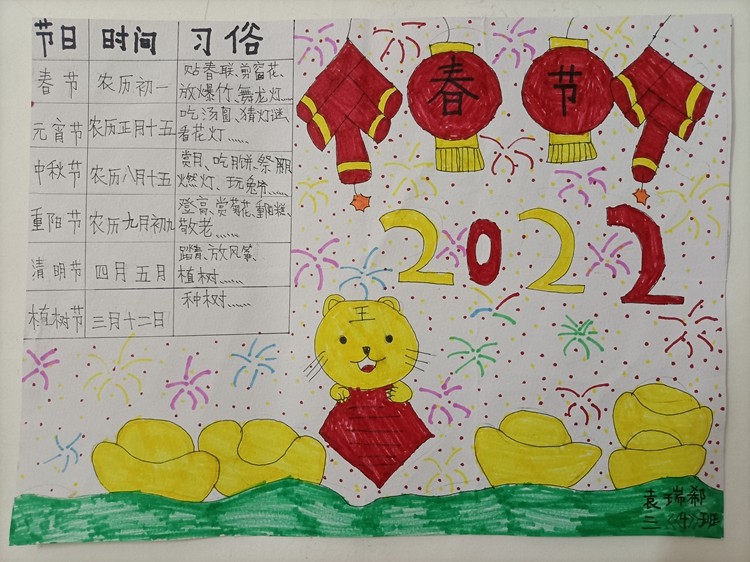 节日 时间 习俗
春节 农历初一 贴春联、剪窗花、
放爆竹、舞龙灯……
元宵节 农历正月十五 吃汤圆、猜灯谜、
看花灯……
中秋节 农历八月十五 赏月、吃月饼、祭月
燃灯、玩兔爷……
重阳节 农历九月初九 登高、赏菊花、重阳糕、
敬老……
清明节 四月五月 踏青、放风筝、
植树……
植树节 三月十二日 种树……
春节
2022
王
袁瑞
二 班